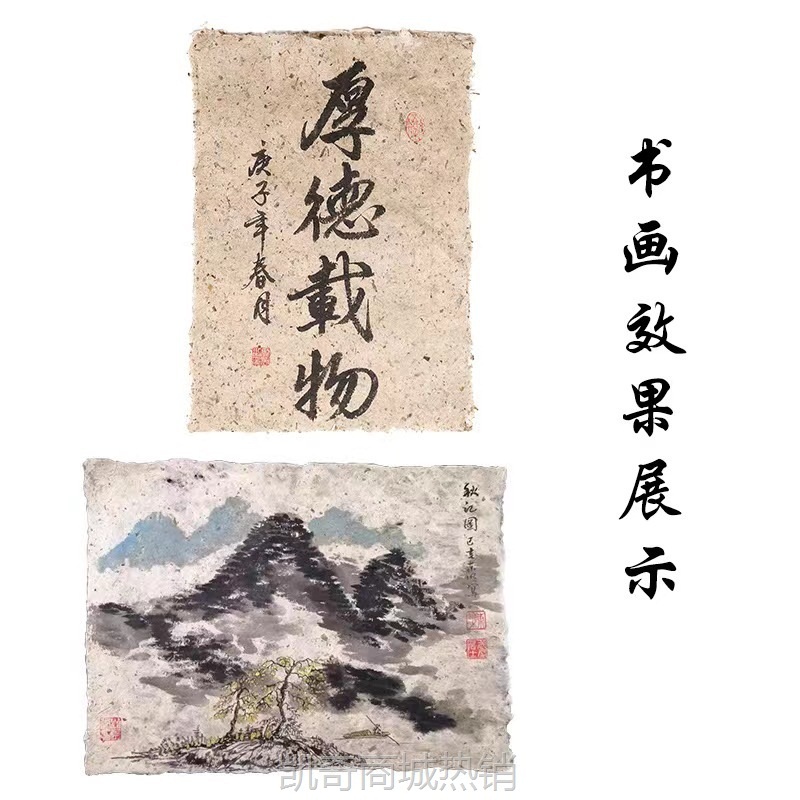 厚德載物
庚子年春月
书画效果展示
秋江圖 己亥
凯奇商城热销